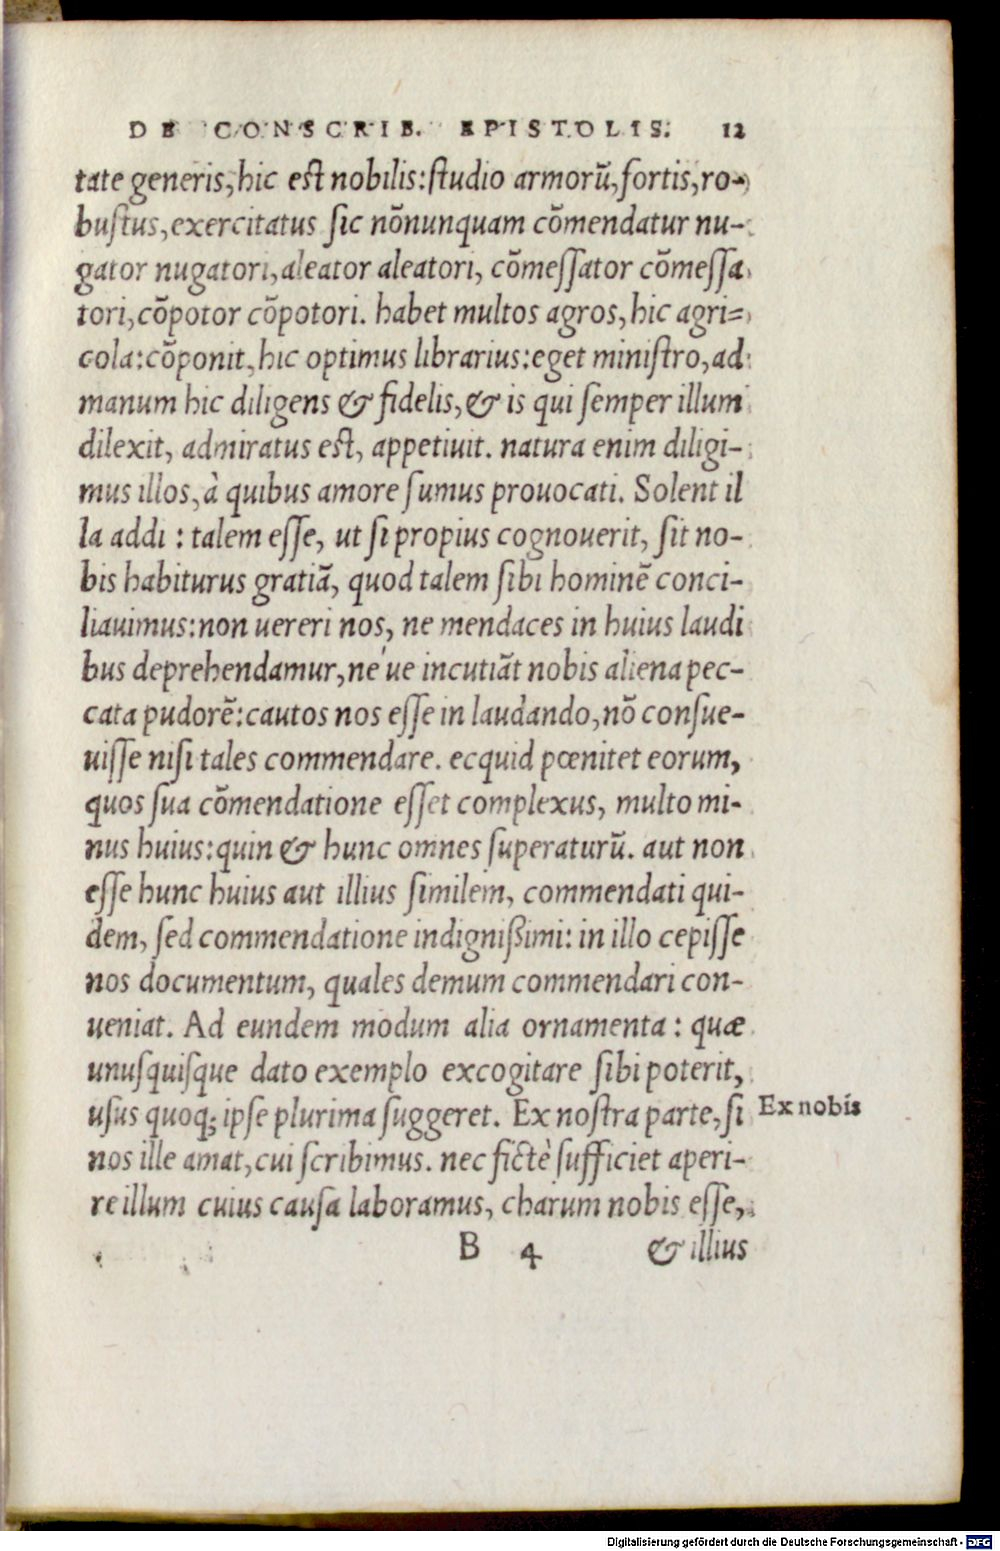 DE CONSCRIB. EPISTOLIS. 12
tate generis, hic est nobilis: studio armorũ, fortis, ro-
bustus, exercitatus sic nõnunquam cõmendatur nu-
gator nugatori, aleator aleatori, cõmessator cõmessa
tori, cõpotor cõpotori. habet multos agros, hic agri=
cola: cõponit, hic optimus librarius: eget ministro, ad
manum hic diligens & fidelis, & is qui semper illum
dilexit, admiratus est, appetiuit. natura enim diligi-
mus illos, à quibus amore sumus prouocati. Solent il
la addi : talem esse, ut si propius cognouerit, sit no-
bis habiturus gratiã, quod talem sibi hominẽ conci-
liauimus: non uereri nos, ne mendaces in huius laudi
bus deprehendamur, ne'ue incutiãt nobis aliena pec-
cata pudorẽ: cautos nos esse in laudando, nõ consue-
uisse nisi tales commendare. ecquid pœnitet eorum,
quos sua cõmendatione esset complexus, multo mi-
nus huius: quin & hunc omnes superaturũ. aut non
esse hunc huius aut illius similem, commendati qui-
dem, sed commendatione indignißimi: in illo cepisse
nos documentum, quales demum commendari con-
ueniat. Ad eundem modum alia ornamenta : quæ
unusquisque dato exemplo excogitare sibi poterit,
usus quoq; ipse plurima suggeret. Ex nostra parte, si
Ex nobis
nos ille amat, cui scribimus. nec fictè sufficiet aperi-
re illum cuius causa laboramus, charum nobis esse,
B 4 & illius
Digitalisierung gefördert durch die Deutsche Forschungsgemeinschaft - DFG